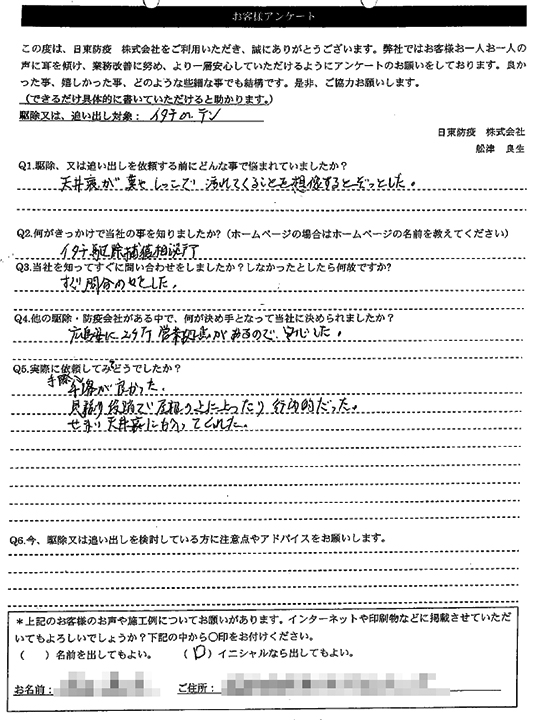 お客様アンケート
この度は、日東防疫 株式会社をご利用いただき、誠にありがとうございます。弊社ではお客様お一人お一人の
声に耳を傾け、業務改善に努め、より一層安心していただけるようにアンケートのお願いをしております。良か
った事、嬉しかった事、どのような些細な事でも結構です。是非、ご協力お願いします。
(できるだけ具体的に書いていただけると助かります。)
駆除又は、追い出し対象: イタチorテン
日東防疫 株式会社
舩津 良生
Q1.駆除、又は追い出しを依頼する前にどんな事で悩まれていましたか?
天井裏が糞やしっこで汚れてくることを想像するとぞっとした。
Q2.何がきっかけで当社の事を知りましたか?(ホームページの場合はホームページの名前を教えてください)
イタチ駆除捕獲相談所
Q3.当社を知ってすぐに問い合わせをしましたか?しなかったとしたら何故ですか?
すぐ問合わせをした。
Q4.他の駆除・防疫会社がある中で、何が決め手となって当社に決められましたか?
広島県に2ヶ所営業拠点があるので、安心した。
Q5.実際に依頼してみてどうでしたか?
手際が良かった。
見積り段階で屋根の上に上ったり行動的だった。
せまい天井裏に入ってくれた。
Q6.今、駆除又は追い出しを検討している方に注意点やアドバイスをお願いします。
*上記のお客様のお声や施工例についてお願いがあります。インターネットや印刷物などに掲載させていただ
いてもよろしいでしょうか?下記の中から○印をお付けください。
( )名前を出してもよい。 (○)イニシャルなら出してもよい。
お名前: ご住所: